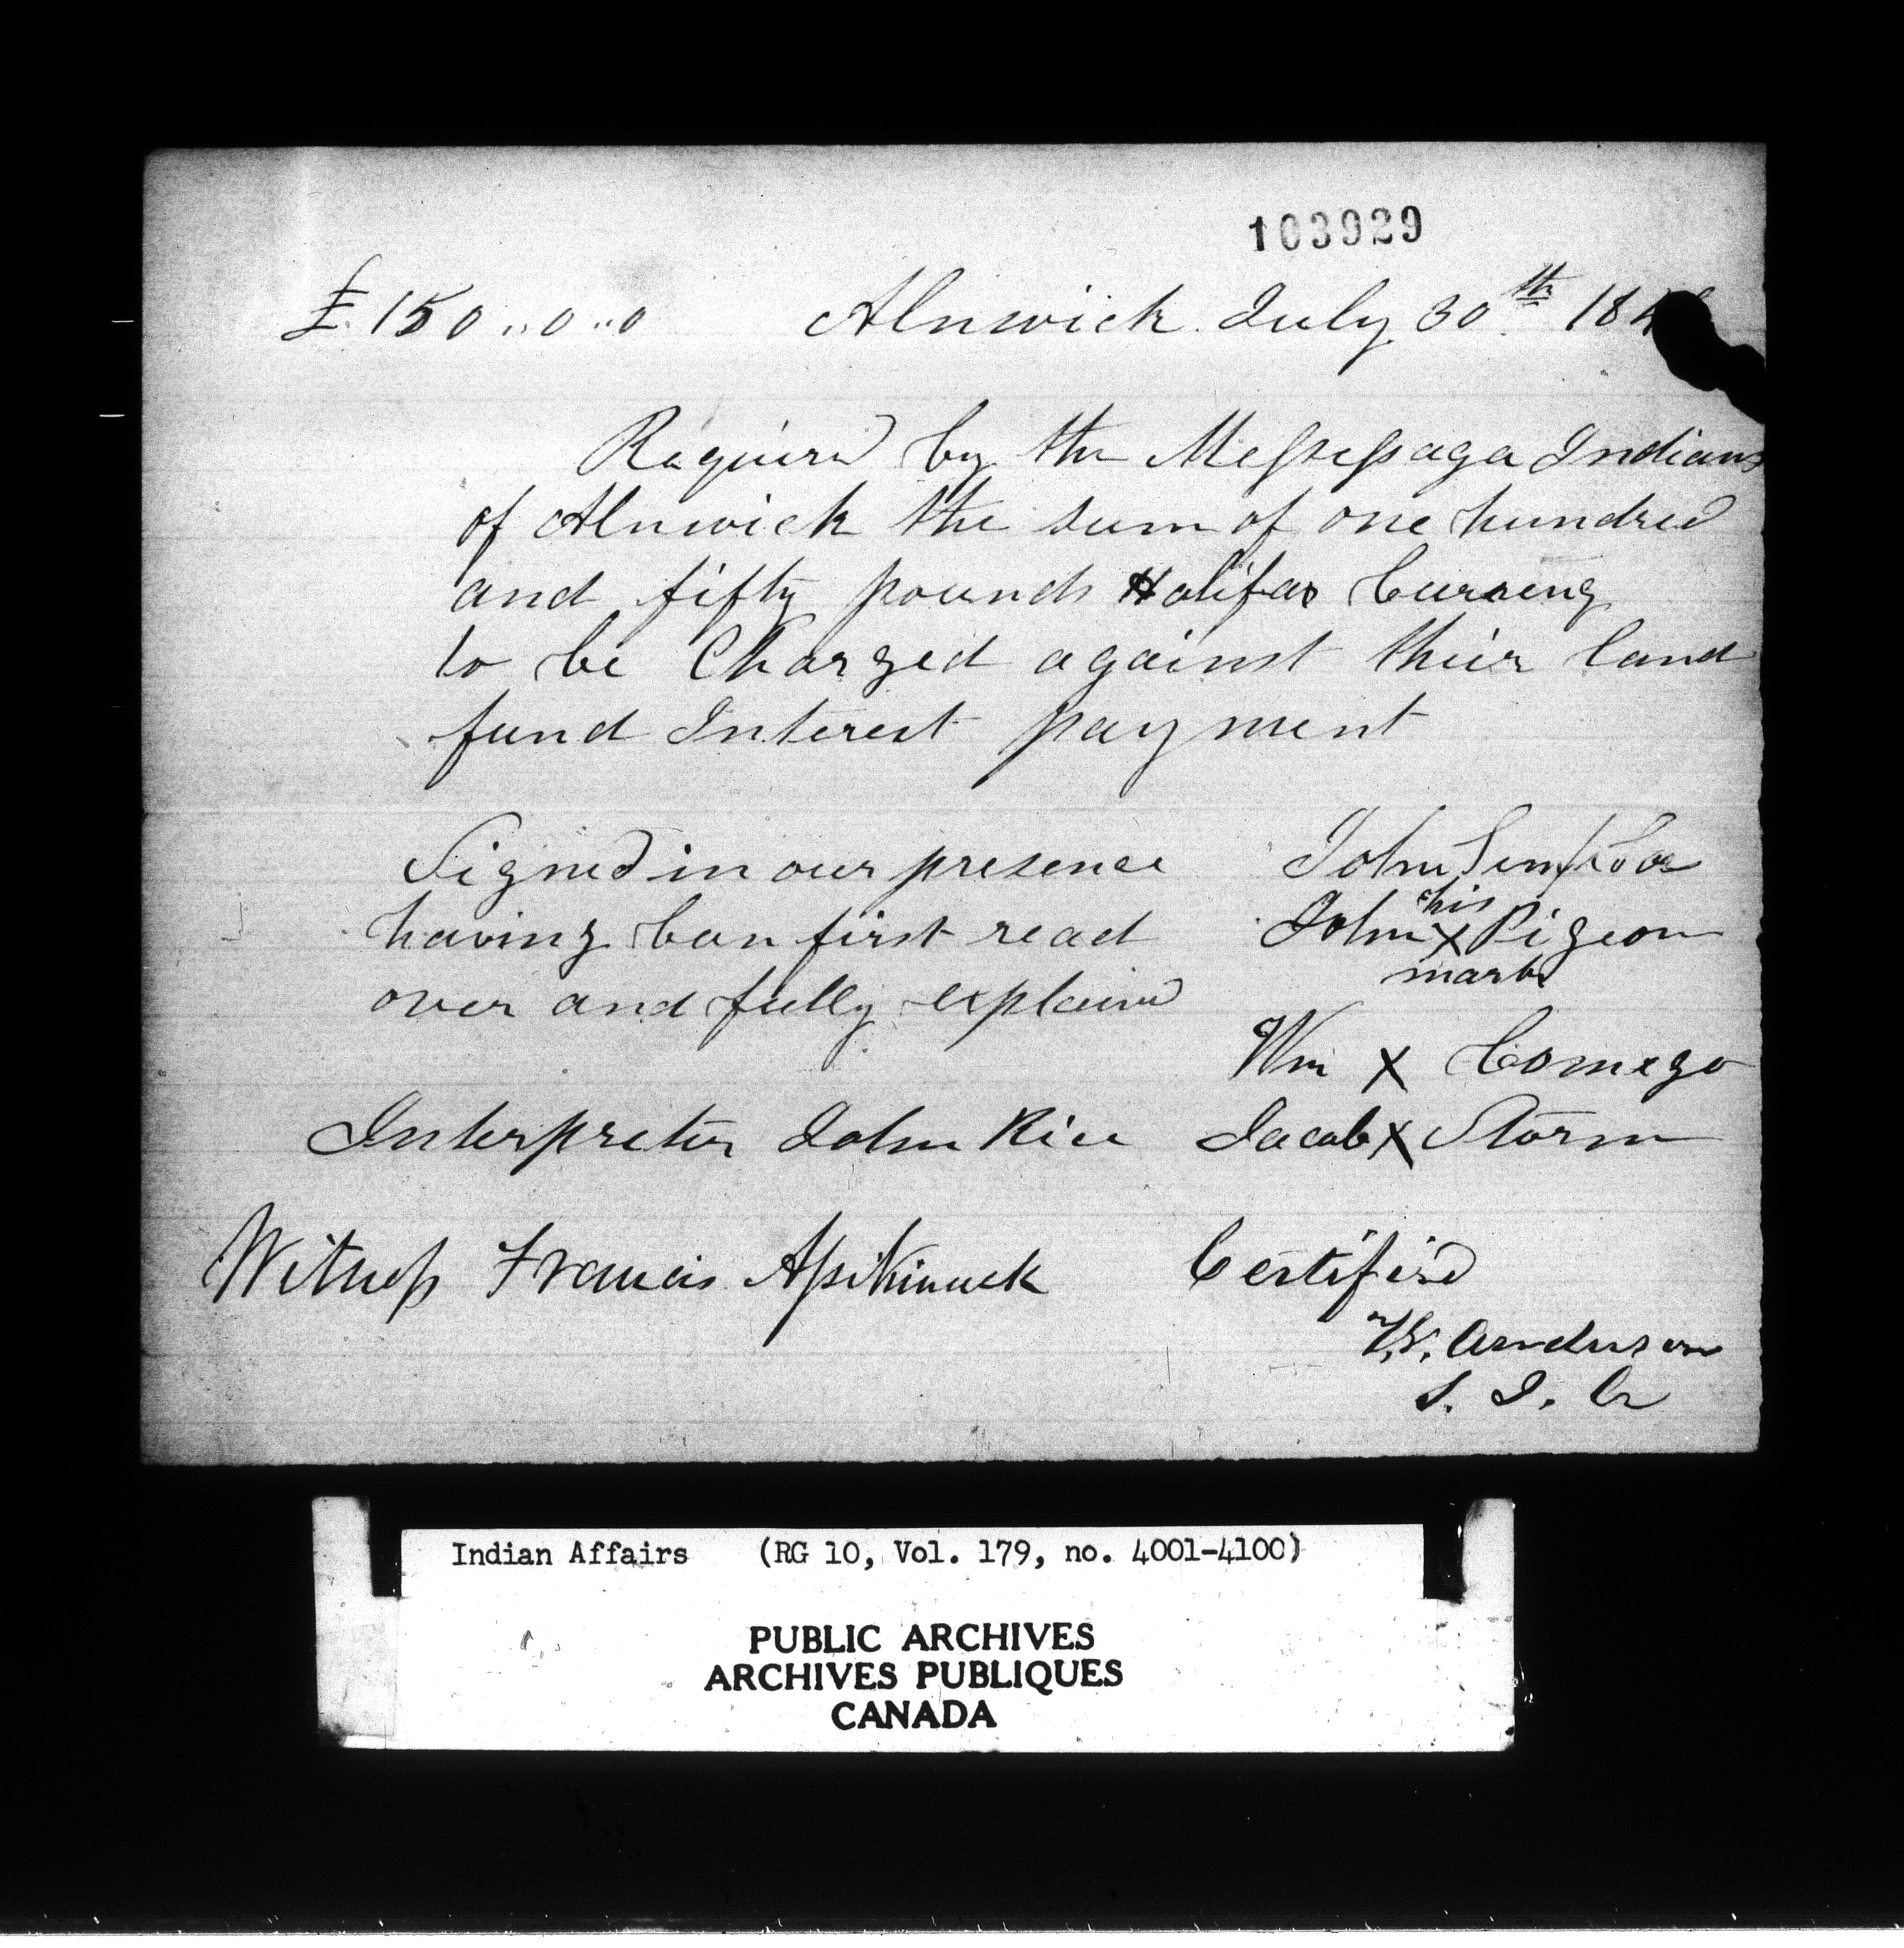 103929
£ 150 ,, 0 ,, 0 Alnwick July 30th 184
Required by the Messessaga Indians
of Alnwick the sum of one hundred
and fifty pounds Halifax Curreny
to be Charged against their land
fund Interest payment
Signed in our presence John Simpson
having been first read John his X mark Pigeon
over and fully explained
Wm X Comego
Interpreter John Rice Jacob X Storm
Witness Francis Certified
Anderson
S. I. A
Indian Affairs (RG 10, Vol. 179, no. 4001-4100)
PUBLIC ARCHIVES
ARCHIVES PUBLIQUES
CANADA